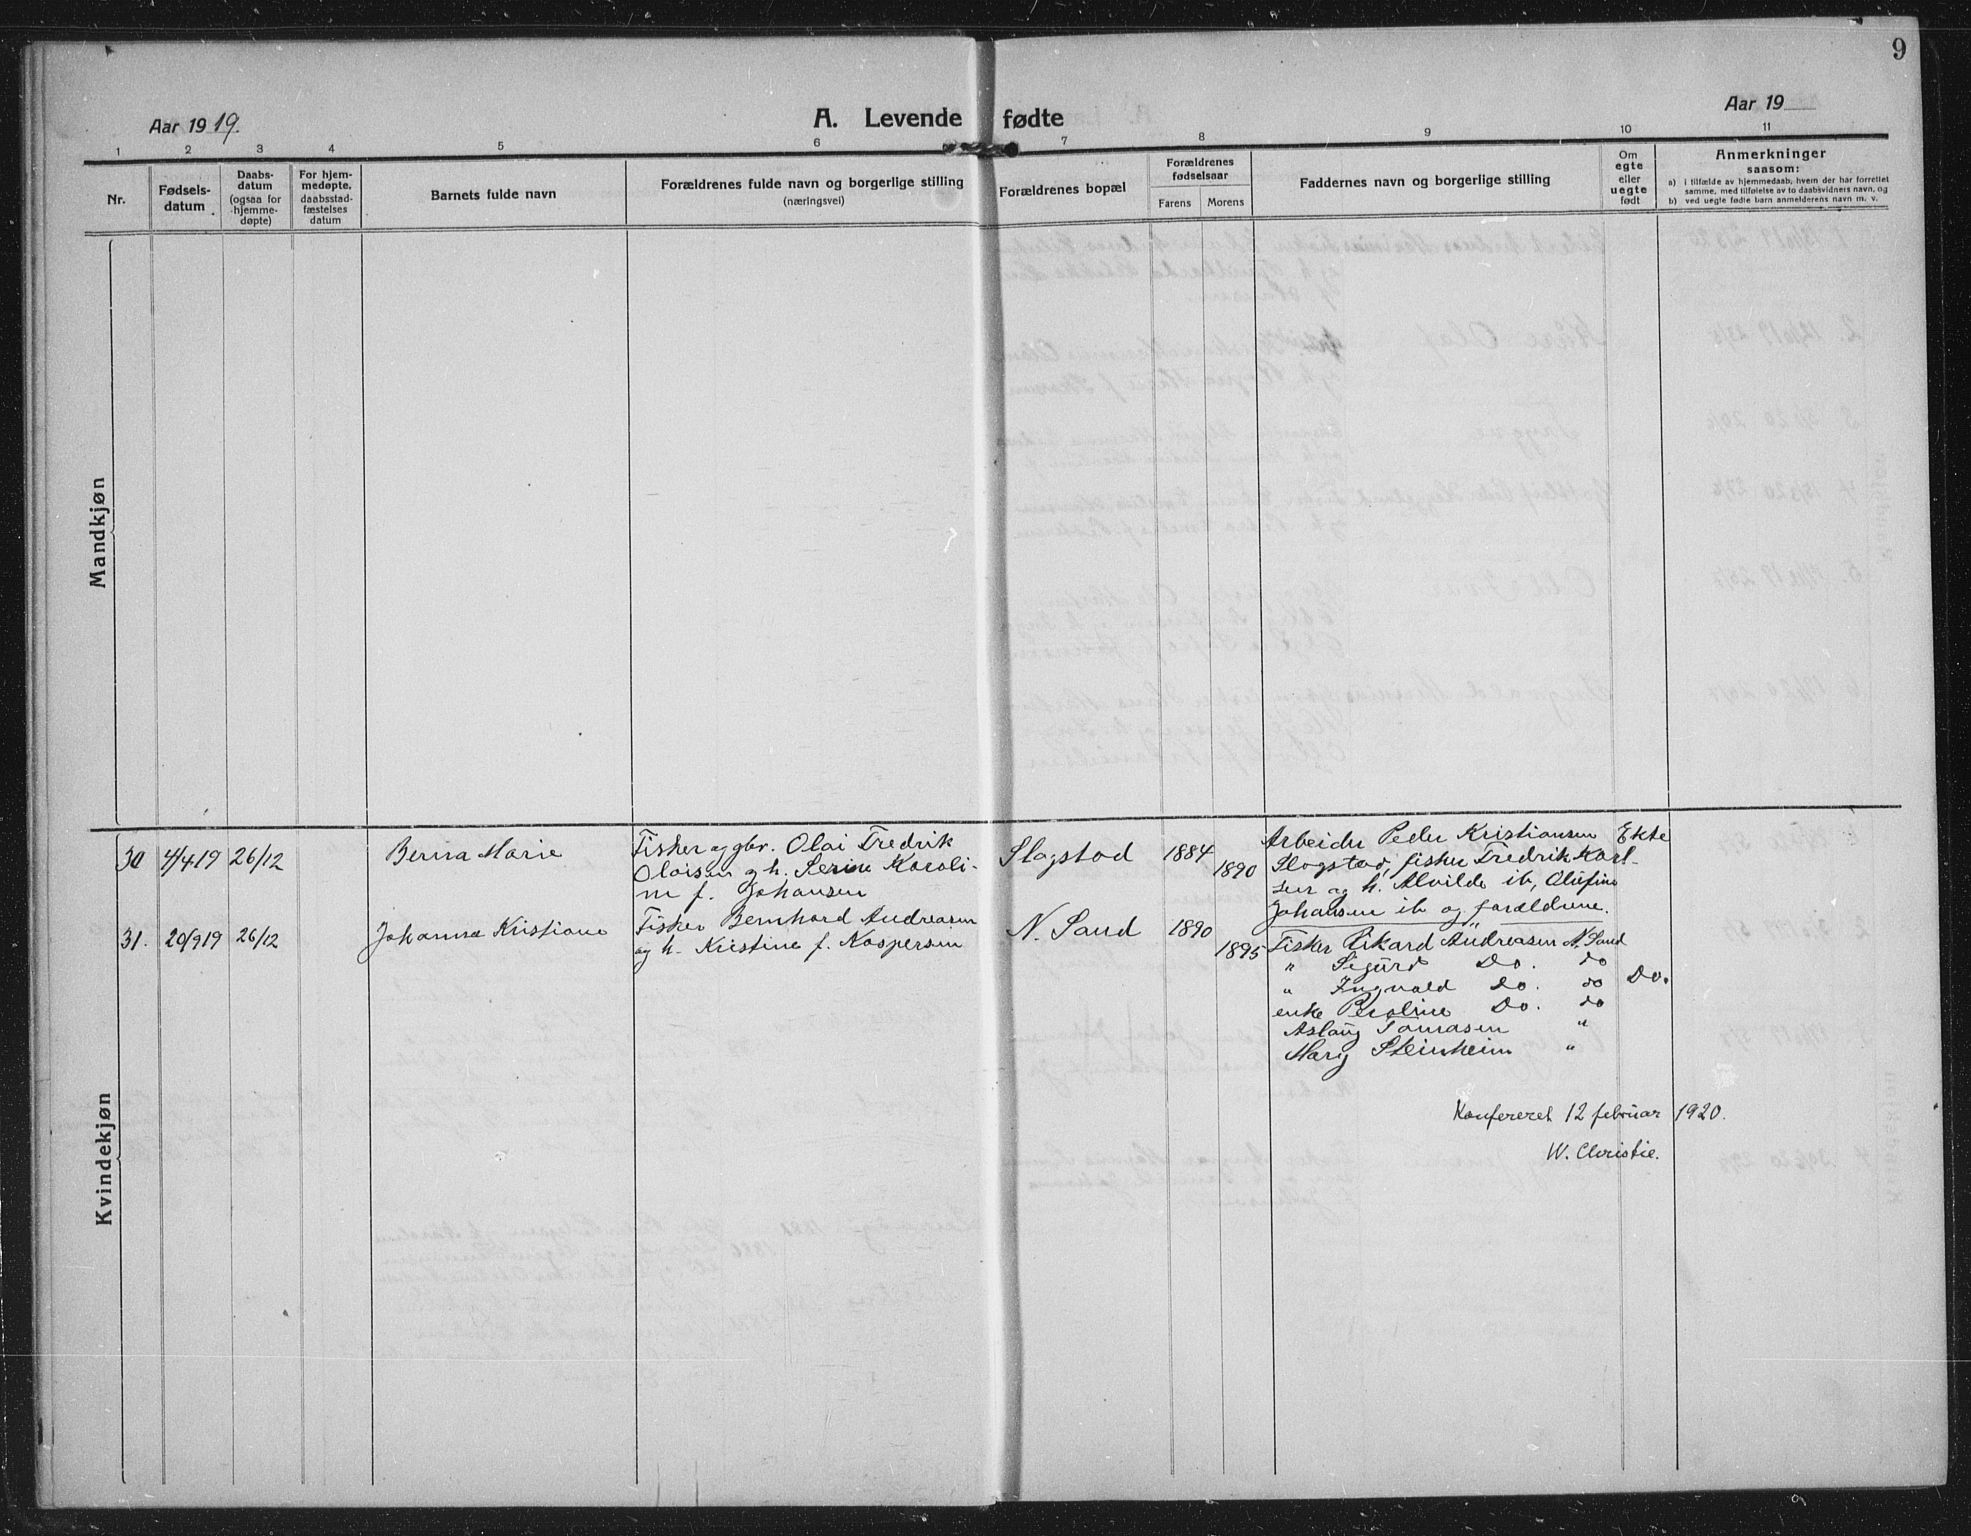 9
Aar 1919.
A. Levende fødte
Aar 19
1 2 3 4 5 6 7 8 9 10 11
Nr.
Fødsels-
datum
Daabs-
datum
(ogsaa for
hjemme-
døpte)
For hjem-
medøpte,
daabsstad-
fæstelses
datum
Barnets fulde navn
Forældrenes fulde navn og borgerlige stilling
(næringsvei)
Forældrenes bopæl
Forældrenes
fødselsaar
Farens Morens
Faddernes navn og borgerlige stilling
Om
egte
eller
uegte
født
Anmerkninger
saasom:
a) i tilfælde av hjemmedaab, hvem der har forrettet
samme, med tilføielse av to daabsvidners navn, og
b) ved uegte fødte barn anmelderens navn m. v.
Mandkjøn
Kvindekjøn
30 4/4 19 26/12
Berna Marie
Fisker og gbr. Olai Fredrik
Olaisen og h. Serine Karoli-
ne f. Johansen
Slagstad
1884
1890
Arbeider Peder Kristiansen
Slogstad, fisker Fredrik Karl-
sen og h. Alvilde ib, Olufine
Johansen ib og forældrene.
Ekte
31. 20/9 19 26/12
Johanna Kristiane
Fisker Bernhard Andreasen
og h. Kristine f. Kaspersen
N. Sand
1890
1895
Fisker Rikard Andreasen N. Sand
" Sigurd Do. do
" Ingvald Do. do
enke Peroline Do. do
Aslaug Tomasen "
Mary Steinheim "
Do.
Konfereret 12 februar 1920.
W. Christie.